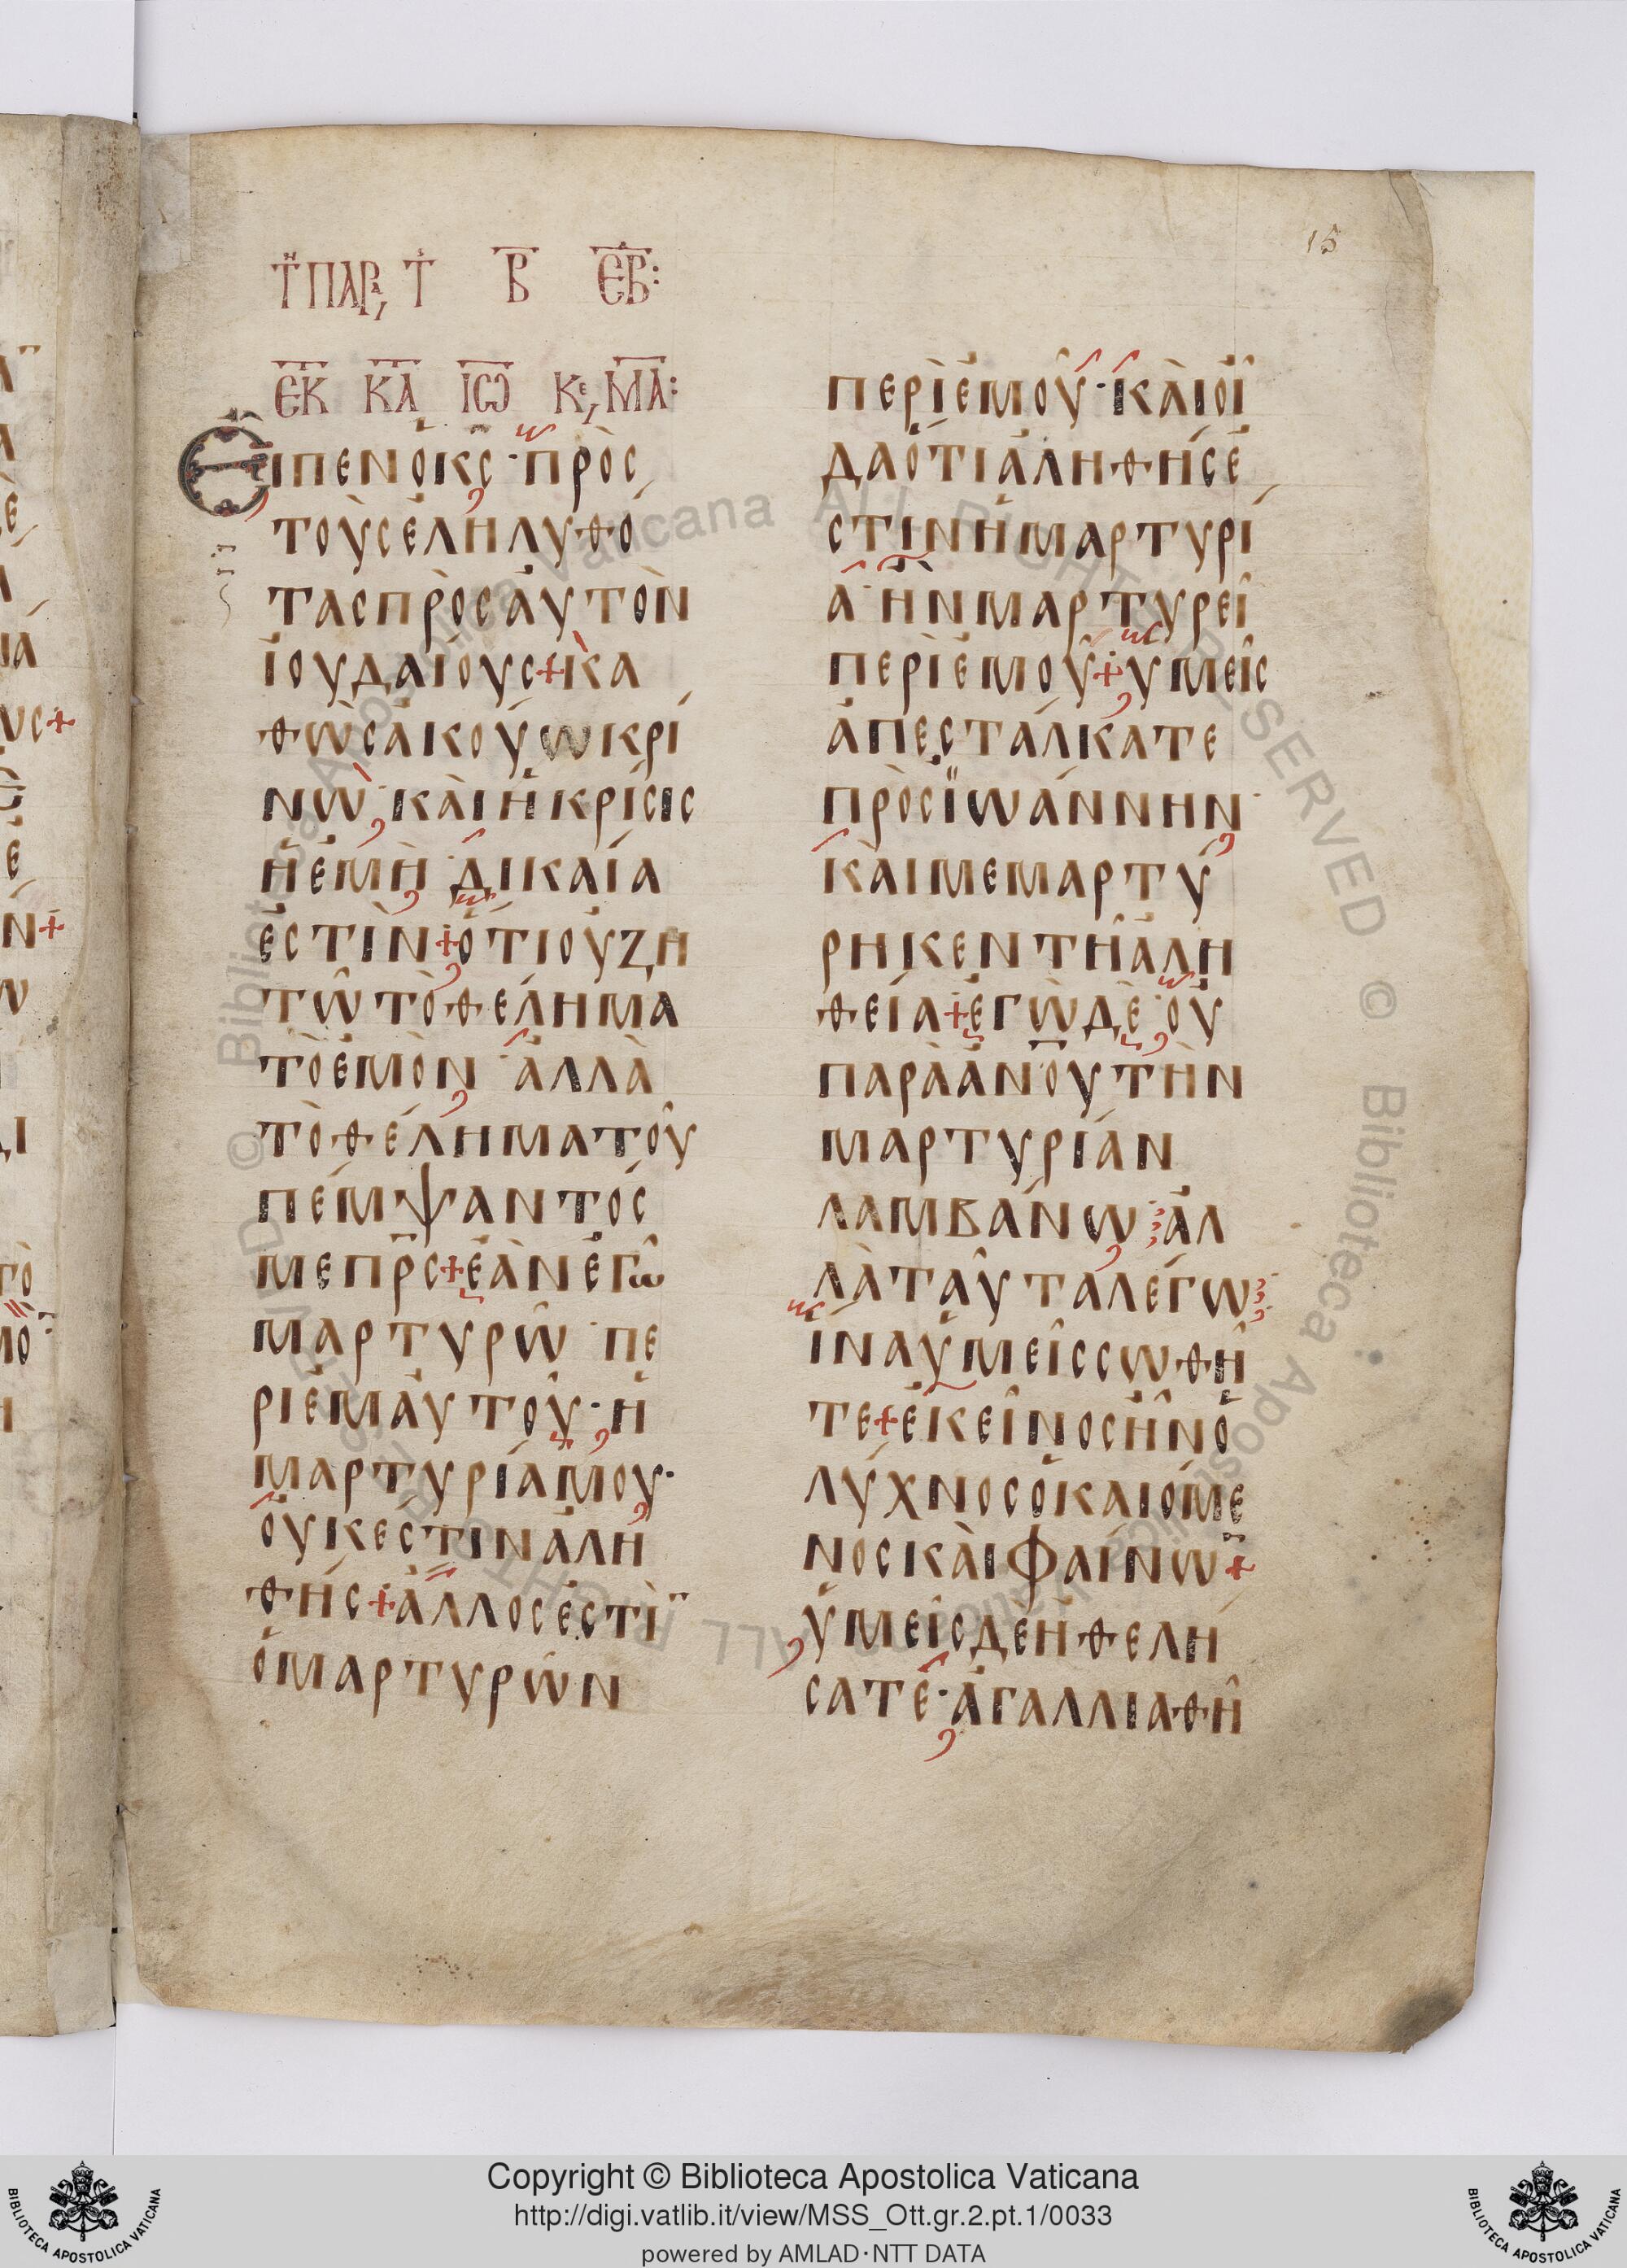 15
Τῌ ΠΑΡ, Τ Β ΕΒ:
ΕΚ ΚΑ ΙΩ Κε, ΜΑ:
ΕΙΠΕΝΟΚϹ· ΠΡΟϹ
ΤΟΥϹΕΛΗΛΥΘΟ
ΤΑϹΠΡΟϹΑΥΤΟΝ
ΙΟΥΔΑΙΟΥϹ+ΚΑ
ΘΩϹΑΚΟΥΩΚΡΙ
ΝΩ· ΚΑΙΗΚΡΙϹΙϹ
ΗΕΜΗ· ΔΙΚΑΙΑ
ΕϹΤΙΝ+ΟΤΙΟΥΖΗ
ΤΩΤΟΘΕΛΗΜΑ
ΤΟΕΜΟΝ· ΑΛΛΑ
ΤΟΘΕΛΗΜΑΤΟΥ
ΠΕΜΨΑΝΤΟϹ
ΜΕΠΡϹ+ΕΑΝΕΓΩ
ΜΑΡΤΥΡΩ· ΠΕ
ΡΙΕΜΑΥΤΟΥ· Η
ΜΑΡΤΥΡΙΑΜΟΥ·
ΟΥΚΕϹΤΙΝΑΛΗ
ΘΗϹ+ΑΛΛΟϹΕϹΤΙ
ΟΜΑΡΤΥΡΩΝ
ΠΕΡΙΕΜΟΥ· ΚΑΙΟΙ
ΔΑΟΤΙΑΛΗΘΗϹΕ
ϹΤΙΝΗΜΑΡΤΥΡΙ
Α· ΗΝΜΑΡΤΥΡΕΙ
ΠΕΡΙΕΜΟΥ+ΥΜΕΙϹ
ΑΠΕϹΤΑΛΚΑΤΕ
ΠΡΟϹΪΩΑΝΝΗΝ·
ΚΑΙΜΕΜΑΡΤΥ
ΡΗΚΕΝΤΗΑΛΗ
ΘΕΙΑ+ΕΓΩΔΕ· ΟΥ
ΠΑΡΑΑΝΟΥΤΗΝ
ΜΑΡΤΥΡΙΑΝ
ΛΑΜΒΑΝΩ· ΑΛ
ΛΑΤΑΥΤΑΛΕΓΩ·
ΙΝΑΥΜΕΙϹϹΩΘΗ
ΤΕ+ΕΚΕΙΝΟϹΗΝΟ
ΛΥΧΝΟϹΟΚΑΙΟΜΕ
ΝΟϹΚΑΙΦΑΙΝΩ+
ΥΜΕΙϹΔΕΗΘΕΛΗ
ϹΑΤΕ· ΑΓΑΛΛΙΑΘΗ
Copyright © Biblioteca Apostolica Vaticana
http://digi.vatlib.it/view/MSS_Ott.gr.2.pt.1/0033
powered by AMLAD·NTT DATA
BIBLIOTECA APOSTOLICA VATICANA
BIBLIOTECA APOSTOLICA VATICANA